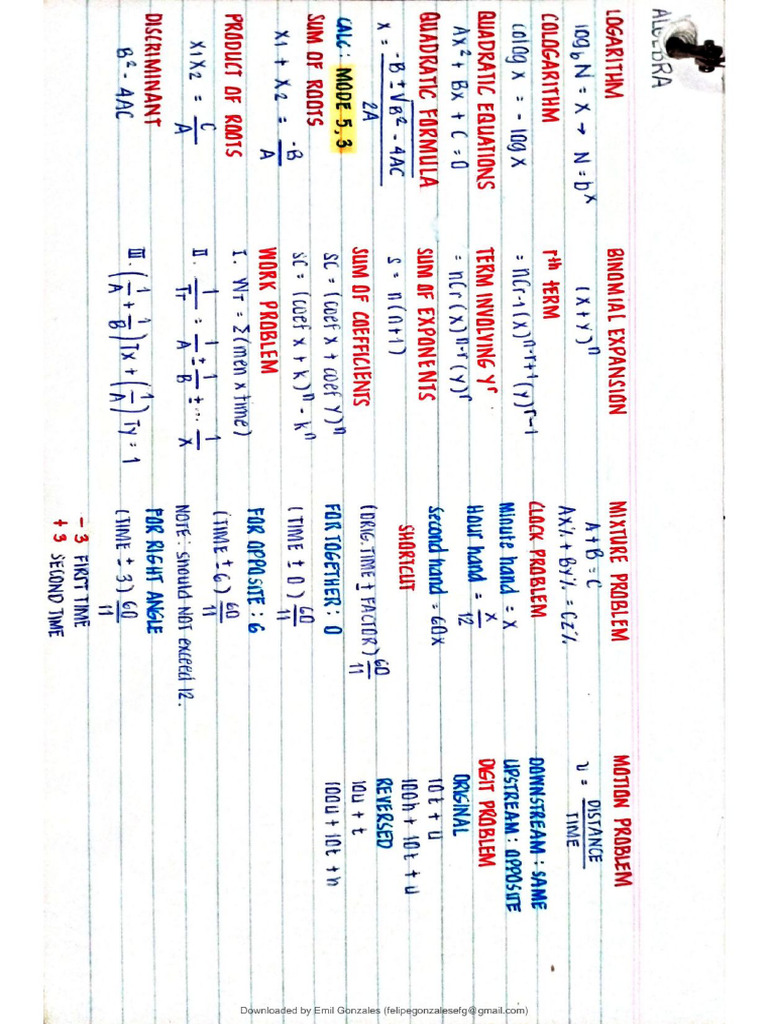 ALGEBRA
LOGARITHM
log_b N = x → N = b^x
COLOGARITHM
colog x = - log x
QUADRATIC EQUATIONS
Ax² + Bx + C = 0
QUADRATIC FORMULA
x = (-B ± √(B² - 4AC)) / 2A
CALC: MODE 5, 3
SUM OF ROOTS
x1 + x2 = -B / A
PRODUCT OF ROOTS
x1x2 = C / A
DISCRIMINANT
B² - 4AC
BINOMIAL EXPANSION
(x+y)^n
rth TERM
= nCr-1 (x)^n-r+1 (y)^r-1
TERM INVOLVING y^r
= nCr (x)^n-r (y)^r
SUM OF EXPONENTS
s = n(n+1)
SUM OF COEFFICIENTS
SC = (coef x + coef y)^n
SC = (coef x + k)^n - k^n
WORK PROBLEM
I. WT = Σ(men x time)
II. 1/TT = 1/A ± 1/B ± ... 1/X
III. (1/A + 1/B)Tx + (1/A)Ty = 1
MIXTURE PROBLEM
A + B = C
Ax% + By% = Cz%
CLOCK PROBLEM
Minute hand = x
Hour hand = x/12
Second hand = 60x
SHORTCUT
(ORIG. TIME ± FACTOR) 60/11
FOR TOGETHER: 0
(TIME ± 0) 60/11
FOR OPPOSITE: 6
(TIME ± 6) 60/11
NOTE: should NOT exceed 12.
FOR RIGHT ANGLE
(TIME ± 3) 60/11
- 3 FIRST TIME
+ 3 SECOND TIME
MOTION PROBLEM
v = DISTANCE / TIME
DOWNSTREAM: SAME
UPSTREAM: OPPOSITE
DIGIT PROBLEM
ORIGINAL
10t + u
100h + 10t + u
REVERSED
10u + t
100u + 10t + h
Downloaded by Emil Gonzales (felipegonzalesefg@gmail.com)